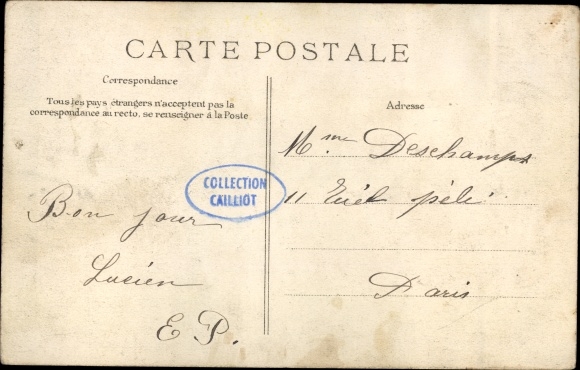 CARTE POSTALE
Correspondance
Tous les pays étrangers n'acceptent pas la
correspondance au recto, se renseigner à la Poste
Bon jour
Lucien
E P.
COLLECTION
CAILLIOT
Adresse
Mme Deschamps
11
Paris